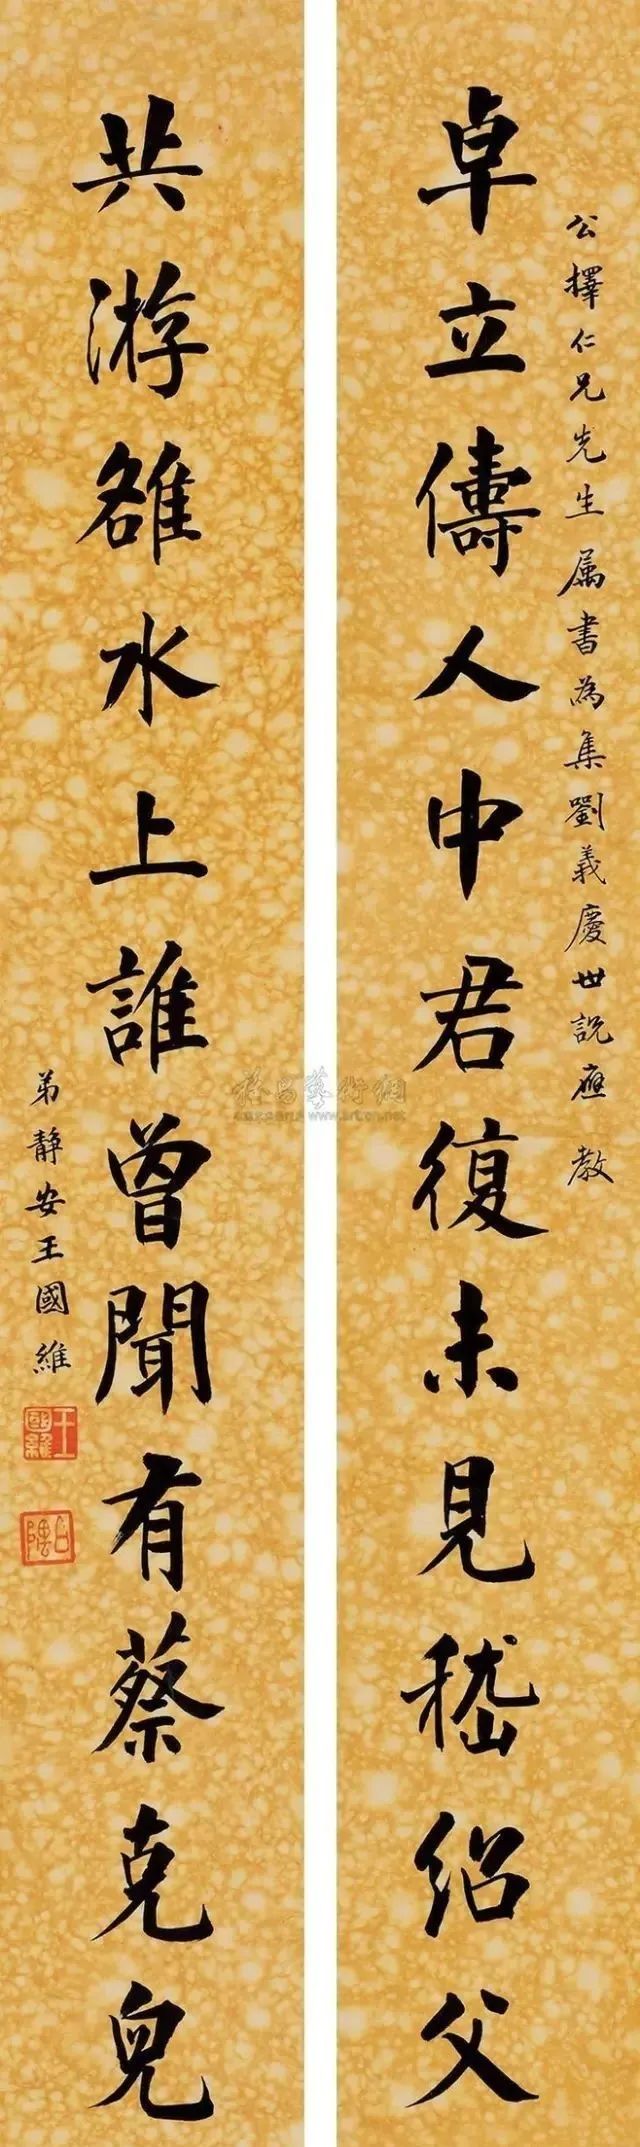 公擇仁兄先生属書為集劉義慶世說應教
卓立儔人中君復未見嵇紹父
共游雒水上誰曾聞有蔡克兒
弟靜安王國維
王國維
www.artcn.net